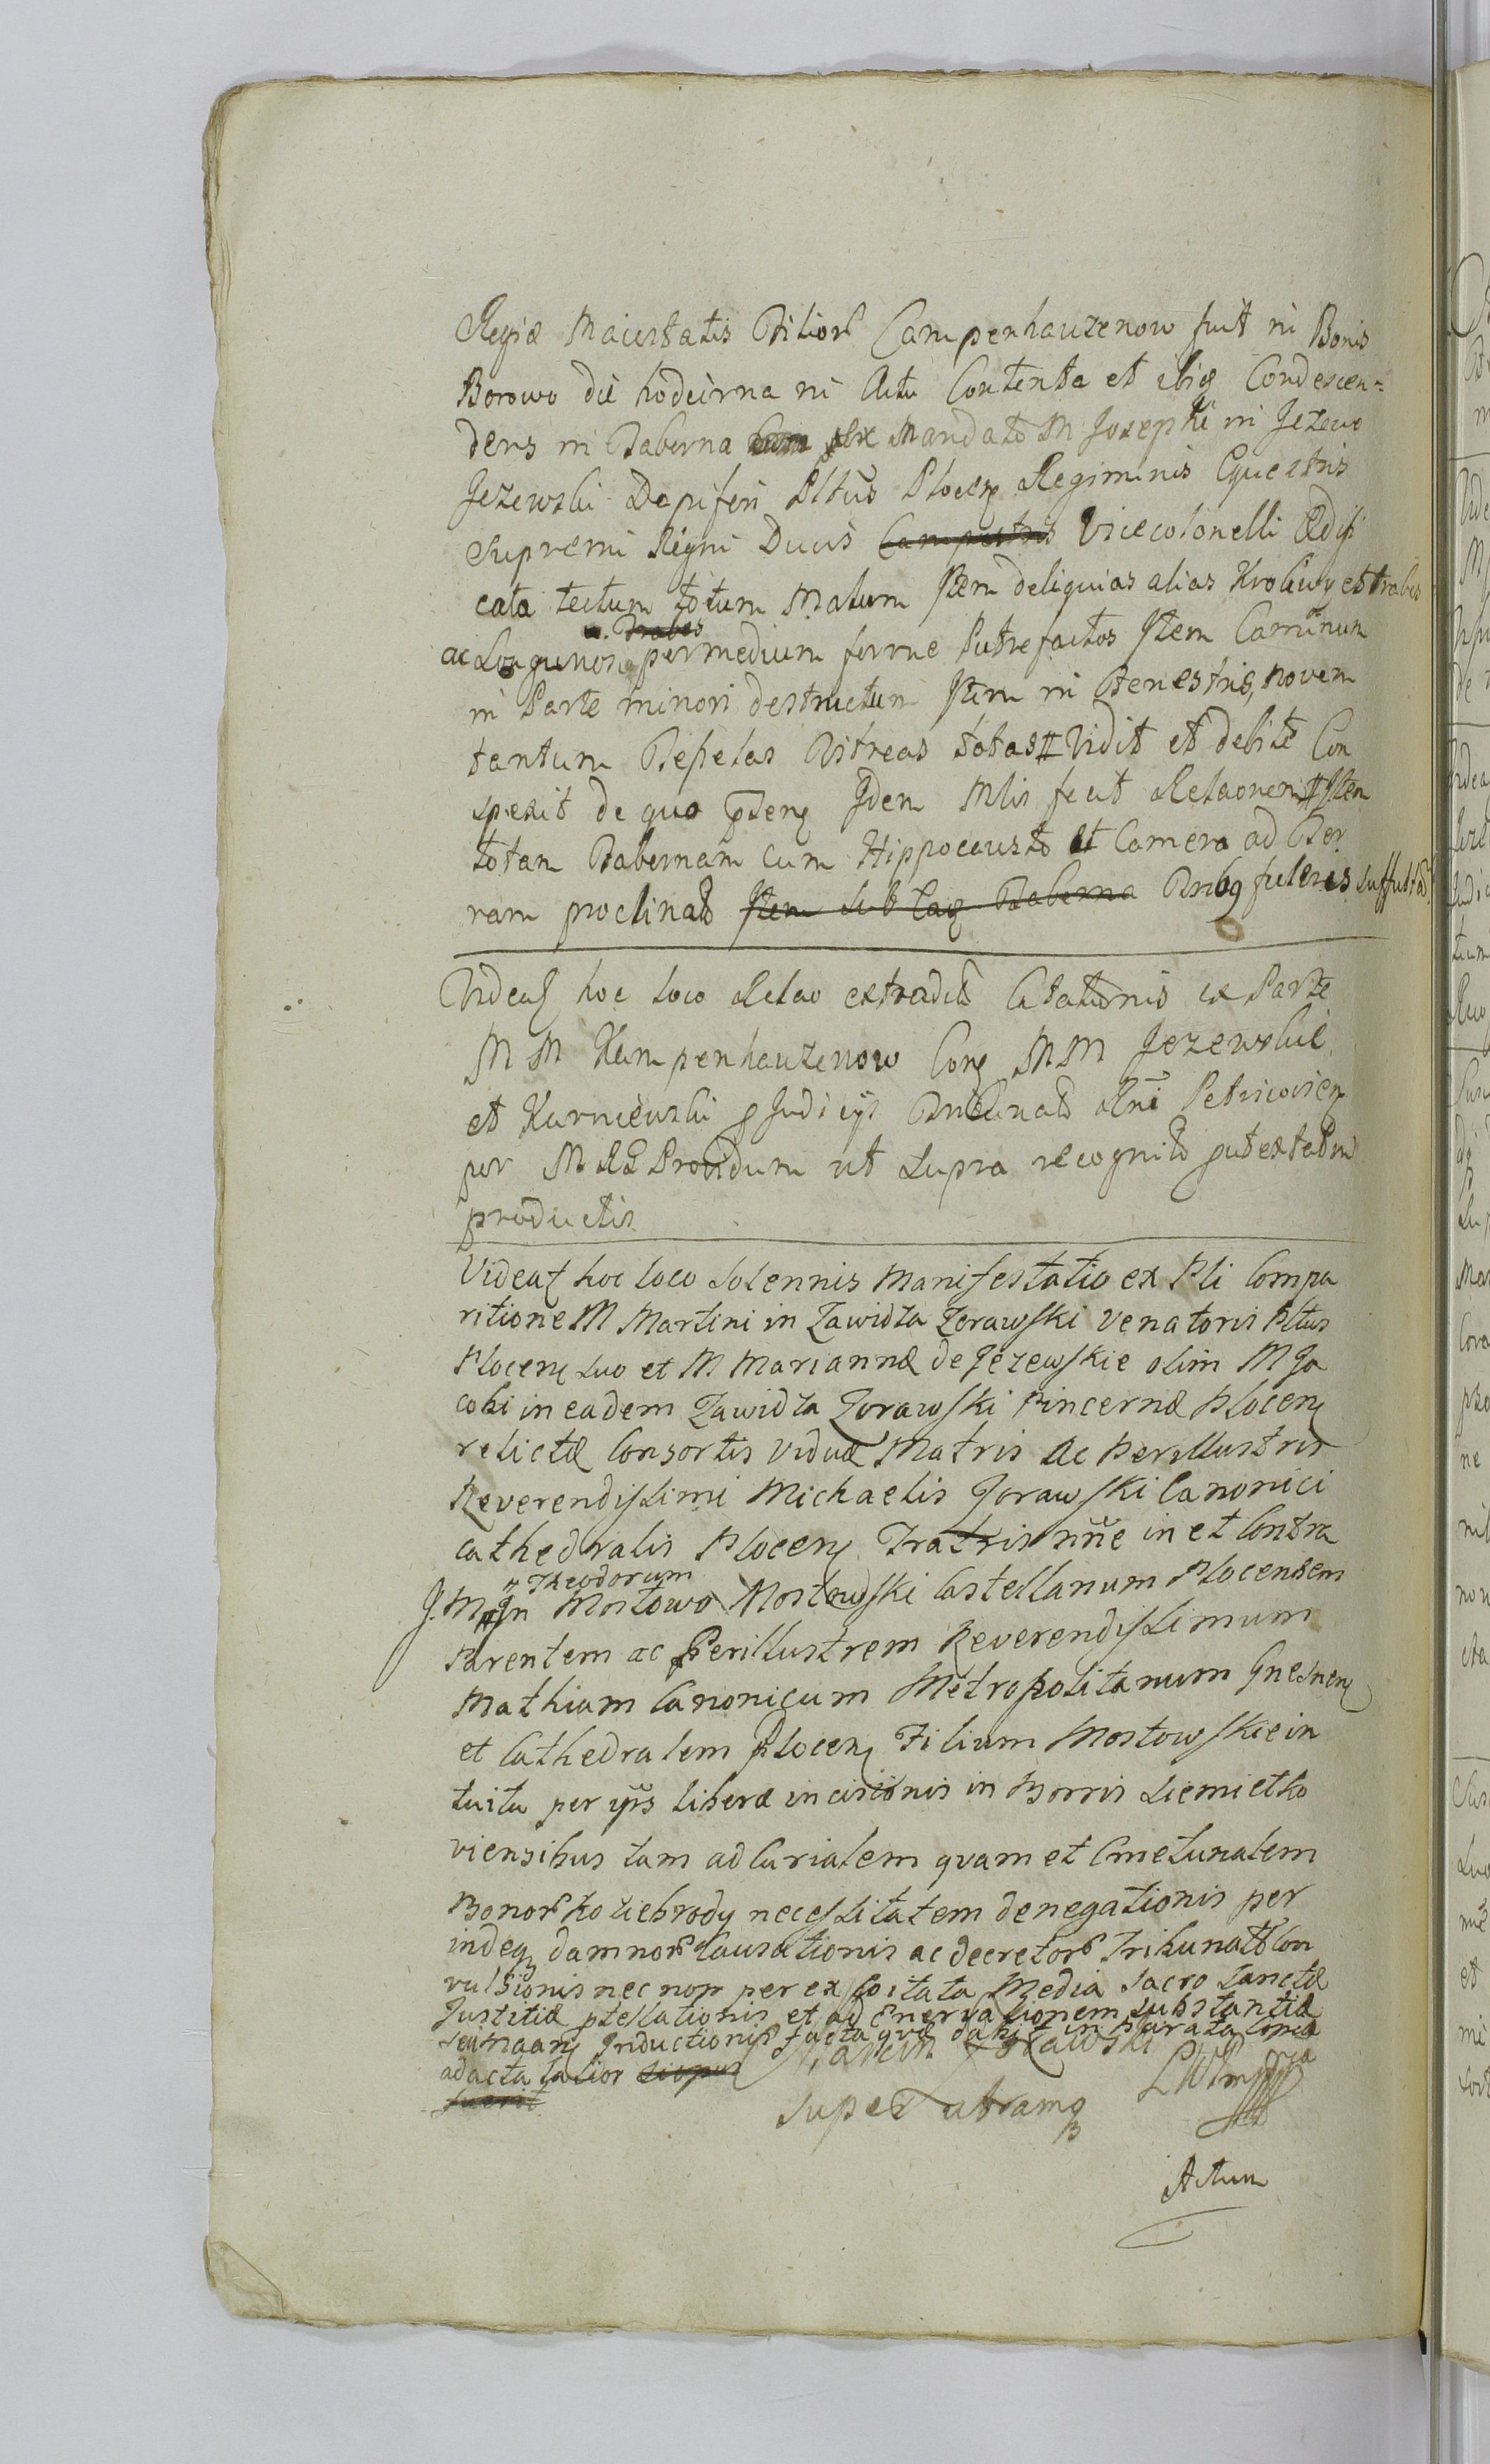 Regiæ Maiestatis Filiorȝ Campenhauzenow fuit in Bonis
Borowo die hodierna in Actu Contenta et ibiq Condescen=
dens in Taberna ex Mandato M Josephi in Jezewo
Jezewski Dapiferi Pltus Plocen Regiminis Equestris
Supremi Regni Ducis Campestris Vicecolonelli Ædifi
cata tectum totum Malum Item deliquias alias Kroliwy et trabes
a. Trabes
ac Longuriores permedium ferme Putrefactos Item Caminum
in Parte minori destructum Item in Fenestris, novem
tantum Tepelas Vitreas totas # Vidit et debite Con
spexit de quo psens Idem Mlis fecit Relaonem # Item
totam Tabernam cum Hippocausto et Camera ad Ter
ram proclinata Item sub eaq Taberna Tribq fulcris suffulta
Videat hoc loco Relao extradit Citationis ex Parte
M M Kampenhauzenow Con M M Jezewskie
et Kurniewski p Judicijs Tribunalis Rni Petricovien
per M RG Providum ut supra recognit put extat in
productis
Videat hoc loco Solennis Manifestatio ex Pli Compa
ritione M Martini in Zawidza Zorawski Venatoris Pltus
Plocen suo et M Mariannæ de Jezewskie olim M Ja
cobi in eadem Zawidza Zorawski Pincernæ Plocen
relictæ Consortis Viduæ Matris ac Perillustris
Reverendissimi Michaelis Zorawski Canonici
cathedralis Plocen Fratris nne in et Contra
# Theodorum
J. M # In Mostowo Mostowski Castellanum Plocensem
Parentem ac Perillustrem Reverendissimum
Mathiam Canonicum Metropolitanum Gnesnen
et Cathedralem Plocen Filium Mostowskie in
tuitu per ips liberæ incisionis in Borris Siemietko
viensibus tam ad Curialem quam et Cmetunalem
Bonorȝ Koziebrody necessitatem denegationis per
indeq damnorȝ Causationis ac decretorȝ Tribunalt Con
vulsionis nec non per ex Coitata Media Sacro Sanctæ
Justitiæ ptellationis et ad Enervationem substantiæ
inductionis facta quæ dabit in Parata Copia
ad acta latior
fuerit
Marcin Zorawski
super utramq
Actum